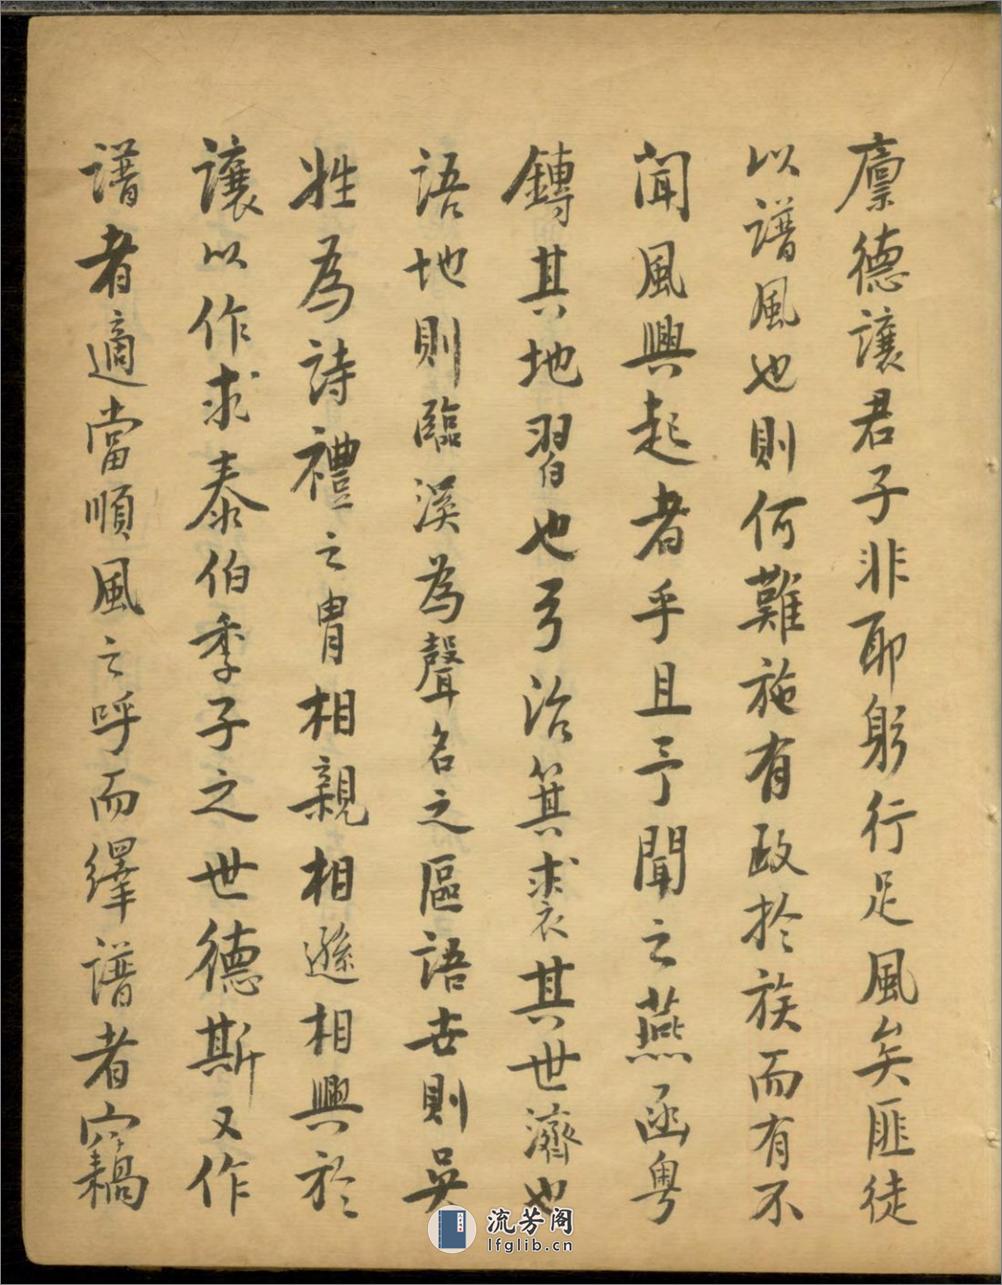 廩德讓君子非耶躬行足風矣匪徒
以譜風也則何難施有政於族而有不
聞風興起者乎且予聞之燕函粵
鎛其地習也弓冶箕裘其世濟也
語地則臨溪為聲名之區語世則吳
姓為詩禮之胄相親相遜相興於
讓以作求泰伯季子之世德斯又作
譜者適當順風之呼而繹譜者
流芳阁
lfglib.cn